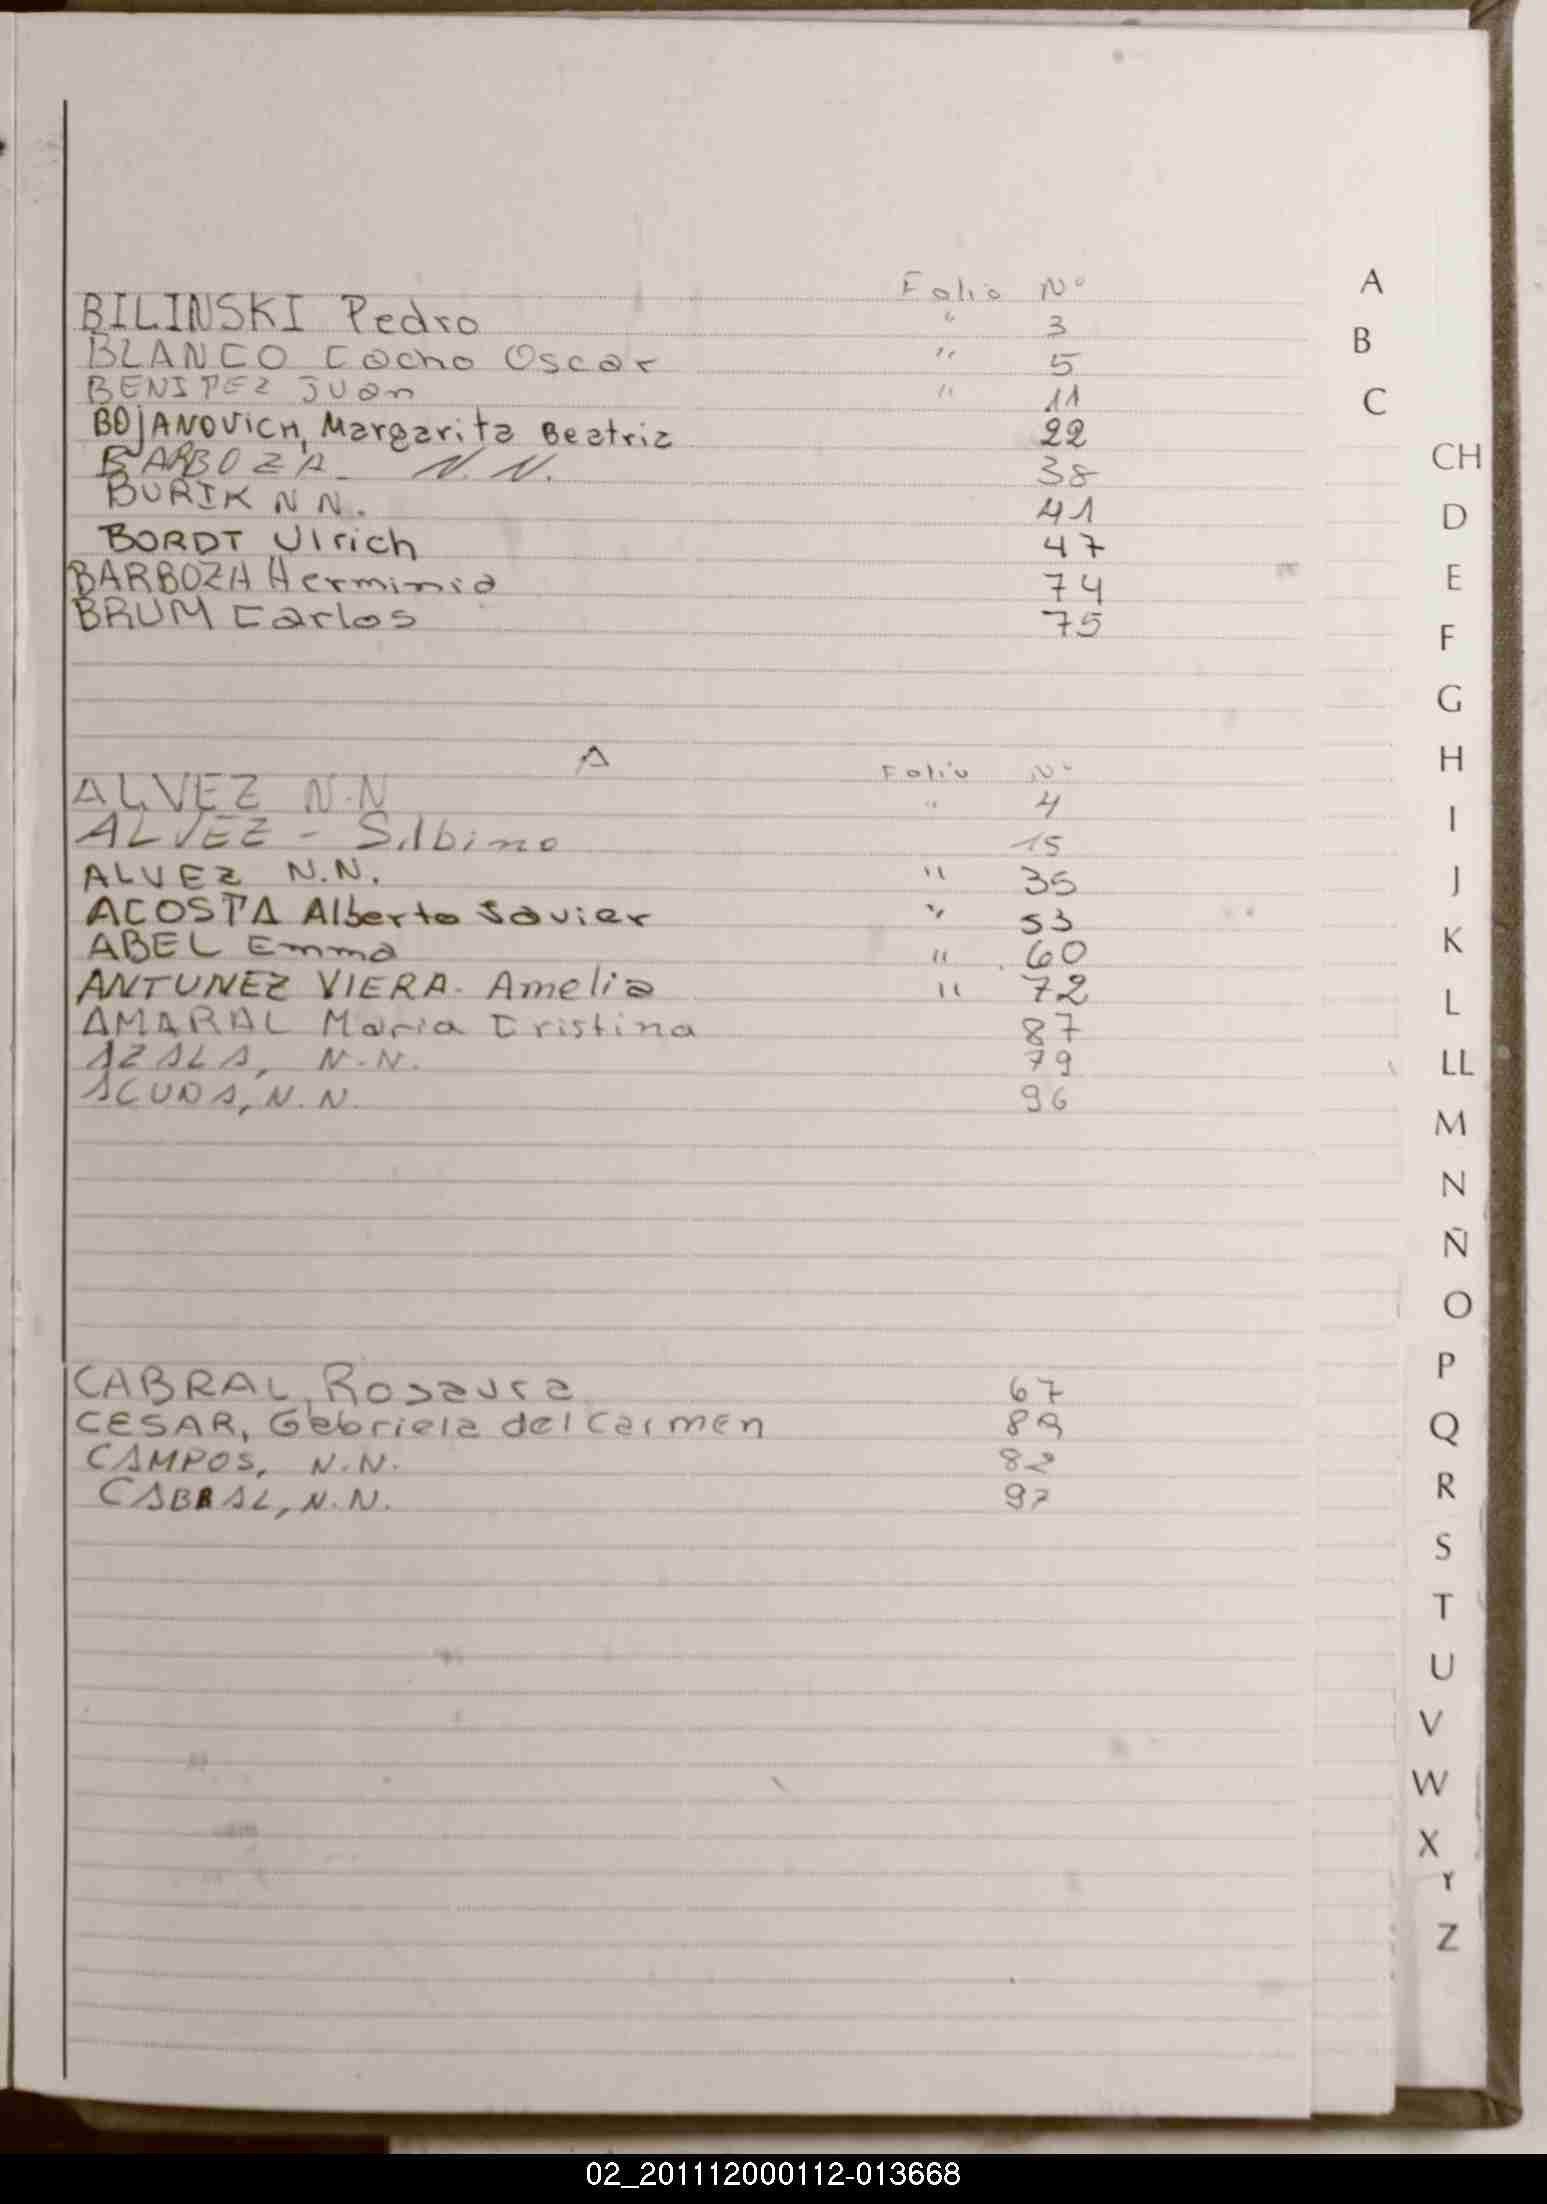 Folio Nº
BILINSKI Pedro " 3
BLANCO Cocho Oscar " 5
BENITEZ Juan " 11
BOJANOVICH, Margarita Beatriz 22
BARBOZA - N.N. 38
BURIK N N. 41
BORDT Ulrich 47
BARBOZA Herminia 74
BRUM Carlos 75
A
Folio Nº
ALVEZ N.N " 4
ALVEZ - Silbino 15
ALVEZ N.N. " 35
ACOSTA Alberto Javier " 53
ABEL Emma " 60
ANTUNEZ VIERA - Amelia " 72
AMARAL Maria Cristina 87
AZALA, N.N. 79
ACUÑA, N.N. 96
CABRAL, Rosaura 67
CESAR, Gabriela del Carmen 89
CAMPOS, N.N. 82
CABRAL, N.N. 97
A
B
C
CH
D
E
F
G
H
I
J
K
L
LL
M
N
Ñ
O
P
Q
R
S
T
U
V
W
X
Y
Z
02_201112000112-013668